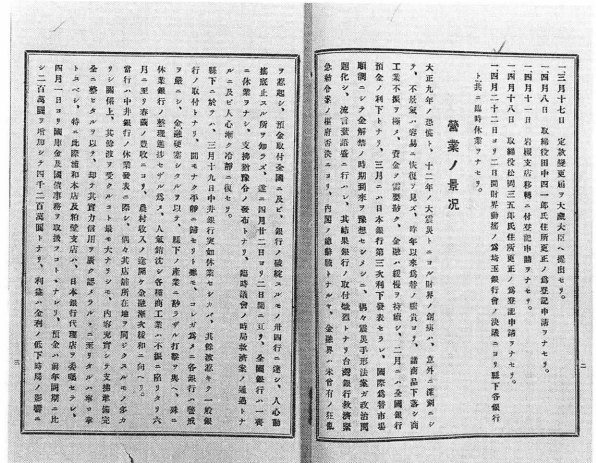 一三月十七日 定款變更屆ヲ大藏大臣ヘ提出セリ。
一四月八日 取締役田中四一郎氏住所更正ノ爲登記申請ヲナセリ。
一四月十一日 岩槻支店移轉ニ付登記申請ヲナセリ。
一四月十八日 取締役松岡三五郎氏住所更正ノ爲登記申請ヲナセリ。
一四月二十二日ヨリ二日間財界動搖ノ爲埼玉銀行會ノ決議ニヨリ縣下各銀行
ト共ニ臨時休業ヲナセリ。
營業ノ景況
大正九年ノ恐慌ト、十二年ノ大震災トニヨル財界ノ創痍ハ、意外ニ深刻ニシ
テ、不景氣ハ容易ニ恢復ヲ見ズ、昨年以來爲替ノ騰貴ニヨリ、諸商品下落シ商
工業不振ヲ極メ、資金ノ需要尠ク、金融ハ緩慢ヲ持續シ、二月ニハ全國銀行
預金ノ利下トナリ、三月ニハ日本銀行第三次利下發表セラレ、國際爲替市場
順潮ニシテ金解禁ノ時期到來ヲ豫想セシメシニ、偶々震災手形法案ガ政治問
題化シ、流言蜚語盛ニ行ハレ、其結果銀行ノ取付熾烈トナリ台灣銀行救濟緊
急勅令案ノ樞府否決ニヨリ、內閣ノ總辭職トナルヤ、金融界ハ未曾有ノ狂亂
二
ヲ惹起シ、預金取付全國ニ及ビ、銀行ノ破綻スルモノ卅四行ニ達シ、人心動
搖底止スル所ヲ知ラズ、遂ニ四月廿二日ヨリ二日間ニ亙リ、全國銀行ハ一齊
ニ休業ヲナシ、支拂猶豫令ノ發布トナリ、臨時議會ノ時局救濟案ノ通過トナ
ルニ及ビ人心漸ク冷靜ニ復セリ。
縣下ニ於テハ、三月十九日中井銀行突如休業セシカバ、其餘波惹キテ一般銀
行ノ取付トナリ、間モナク平靜ニ歸セリト雖モ、コレガ爲メニ各銀行ハ警戒
ヲ嚴ニシ、金融梗塞シタルヲ以テ、縣下ノ產業ニ尠ラザル打擊ヲ與ヘ、殊ニ
休業銀行ノ整理遲々セザル爲メ、人氣銷沈シ各種商工業ハ不振ニ陷リタリ六
月ニ至リ春繭ノ豐收ニヨリ、農村收入ノ途開ケ金融漸次緩和ニ向ヘリ。
當行ハ中井銀行ノ休業發表ニ際シ、偶々其店舖所在地ヲ同ジクスルモノ多カ
リシ關係上、其餘波ヲ受クルコト最モ大ナリシモ、內容充實シ支拂準備完
全ニ整ヒタルヲ以テ、却テ其實力信用ヲ廣ク認メラルヽニ至リタルハ專ロ幸
トスベシ、特ニ此際浦和本店及粕壁支店ハ、日本銀行代理店ヲ委囑セラレ、
四月一日ヨリ國庫金及國債事務ヲ取扱フコトヽナレリ、預金ハ前年同期ニ比
シ二百萬圓ヲ增加シテ四千二百萬圓トナリ、利益ハ金利ノ低下時局ノ影響ニ
三